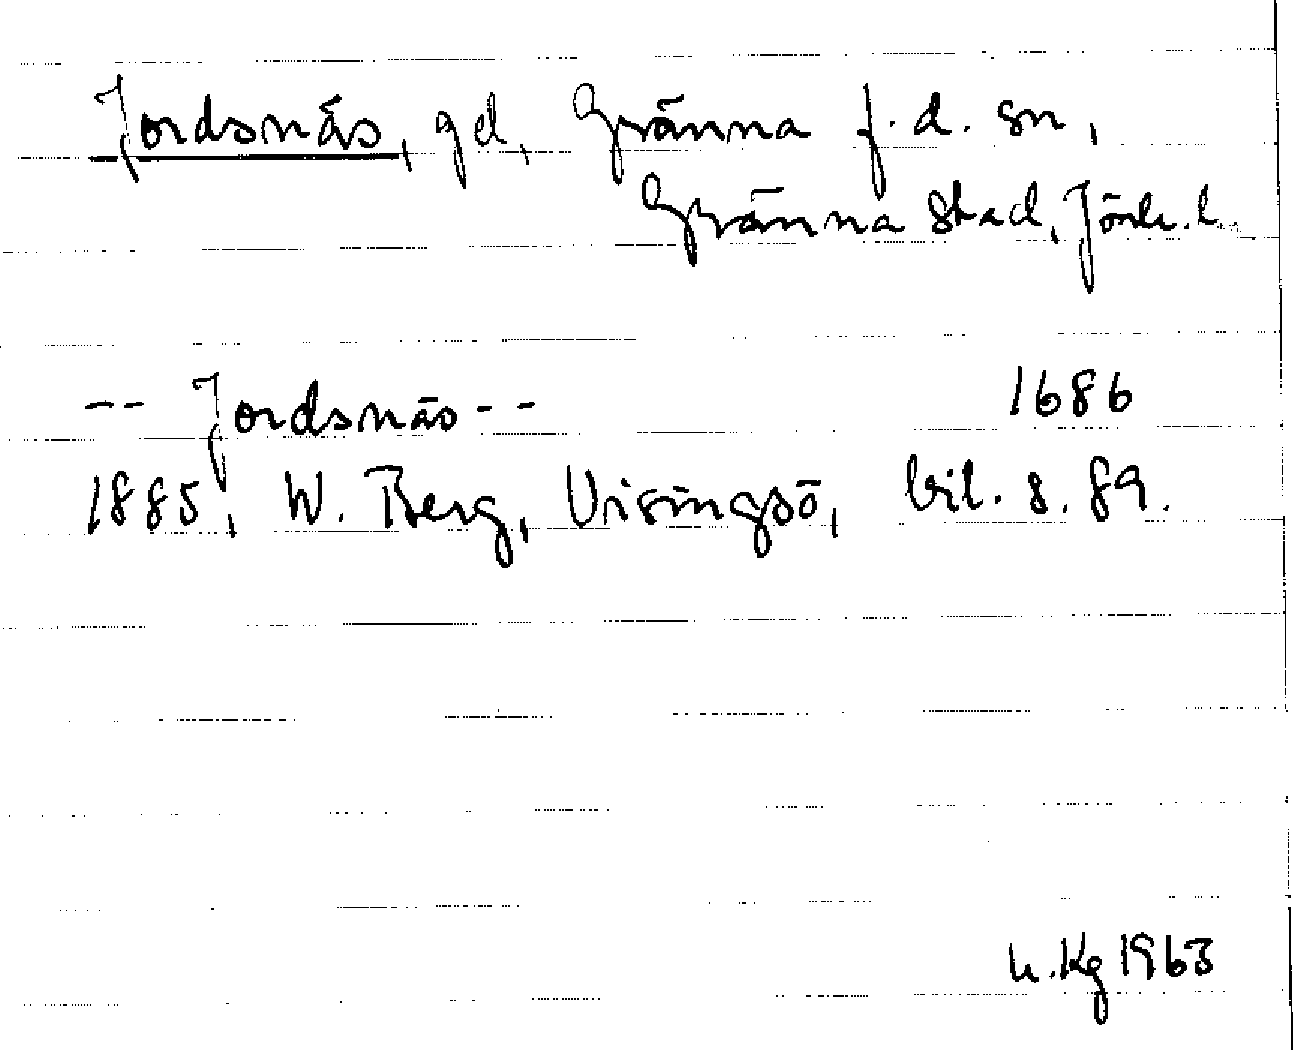 Jordsnäs, gd, Gränna f.d. sn,
Gränna stad, Jönk. l.
-- Jordsnäs -- 1686
1885, W. Berg, Visingsö, bil. s. 89.
h. Kg 1963